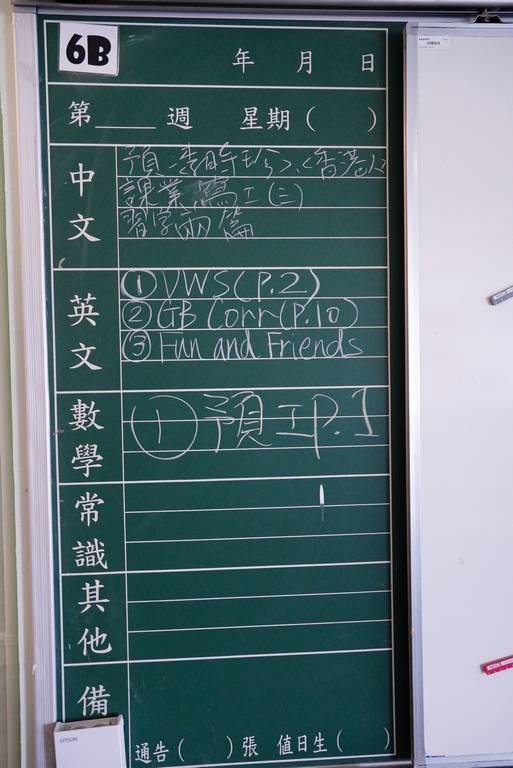 6B
年 月 日
第____週 星期( )
中文
課業:寫工(三)
習字兩篇
英文
① VWS(P.2)
② GB Corr(P.10)
③ Fun and Friends
數學
① 預工P.1
常識
其他
備
通告( )張 值日生( )
EPSON